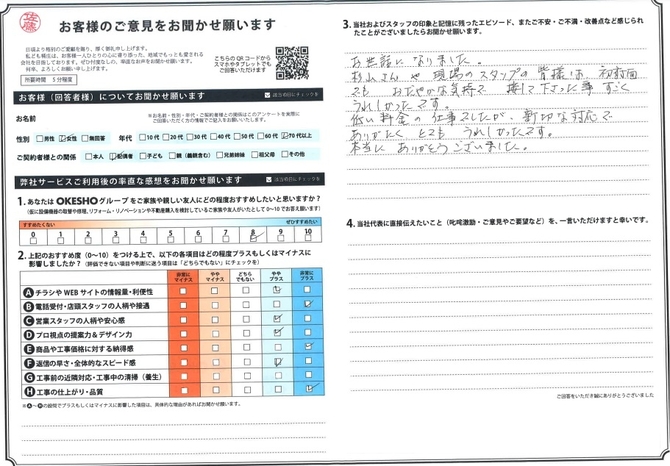 佐藤
お客様のご意見をお聞かせ願います
こちらのQRコードから
スマホやタブレットでも
ご回答いただけます
所要時間 5分程度
お客様(回答者様)についてお聞かせ願います
該当項目にチェックを
お名前
性別 男性 女性 無回答 年代 10代 20代 30代 40代 50代 60代 70代以上
ご契約者様との関係 本人 配偶者 子ども 親(義親含む) 兄弟姉妹 祖父母 その他
弊社サービスご利用後の率直な感想をお聞かせ願います
該当項目にチェックを
1.あなたはOKESHOグループをご家族や親しい友人にどの程度おすすめしたいと思いますか?
すすめたくない ぜひすすめたい
0 1 2 3 4 5 6 7 8 9 10
2.上記のおすすめ度(0〜10)をつける上で、以下の各項目はどの程度プラスもしくはマイナスに
影響しましたか?(評価できない項目や判断に迷う項目は「どちらでもない」にチェックを)
非常にマイナス ややマイナス どちらでもない ややプラス 非常にプラス
A チラシやWEBサイトの情報量・利便性
B 電話受付・店頭スタッフの人柄や接遇
C 営業スタッフの人柄や安心感
D プロ視点の提案力&デザイン力
E 商品や工事価格に対する納得感
F 返信の早さ・全体的なスピード感
G 工事前の近隣対応・工事中の清掃(養生)
H 工事の仕上がり・品質
3.当社およびスタッフの印象と記憶に残ったエピソード、またご不安・ご不満・改善点など感じられ
たことがございましたらお聞かせ願います。
お世話になりました。
杉山さんや 現場のスタッフの皆様は、初対面
でも おだやかな気持で 接して下さった事 すごく
うれしかったです。
低い料金の仕事でしたが、親切な対応で
ありがたく とても うれしかったです。
本当に ありがとうございました。
4.当社代表に直接伝えたいこと(叱咤激励・ご意見やご要望など)を、一言いただけますと幸いです。
ご回答をいただき誠にありがとうございました